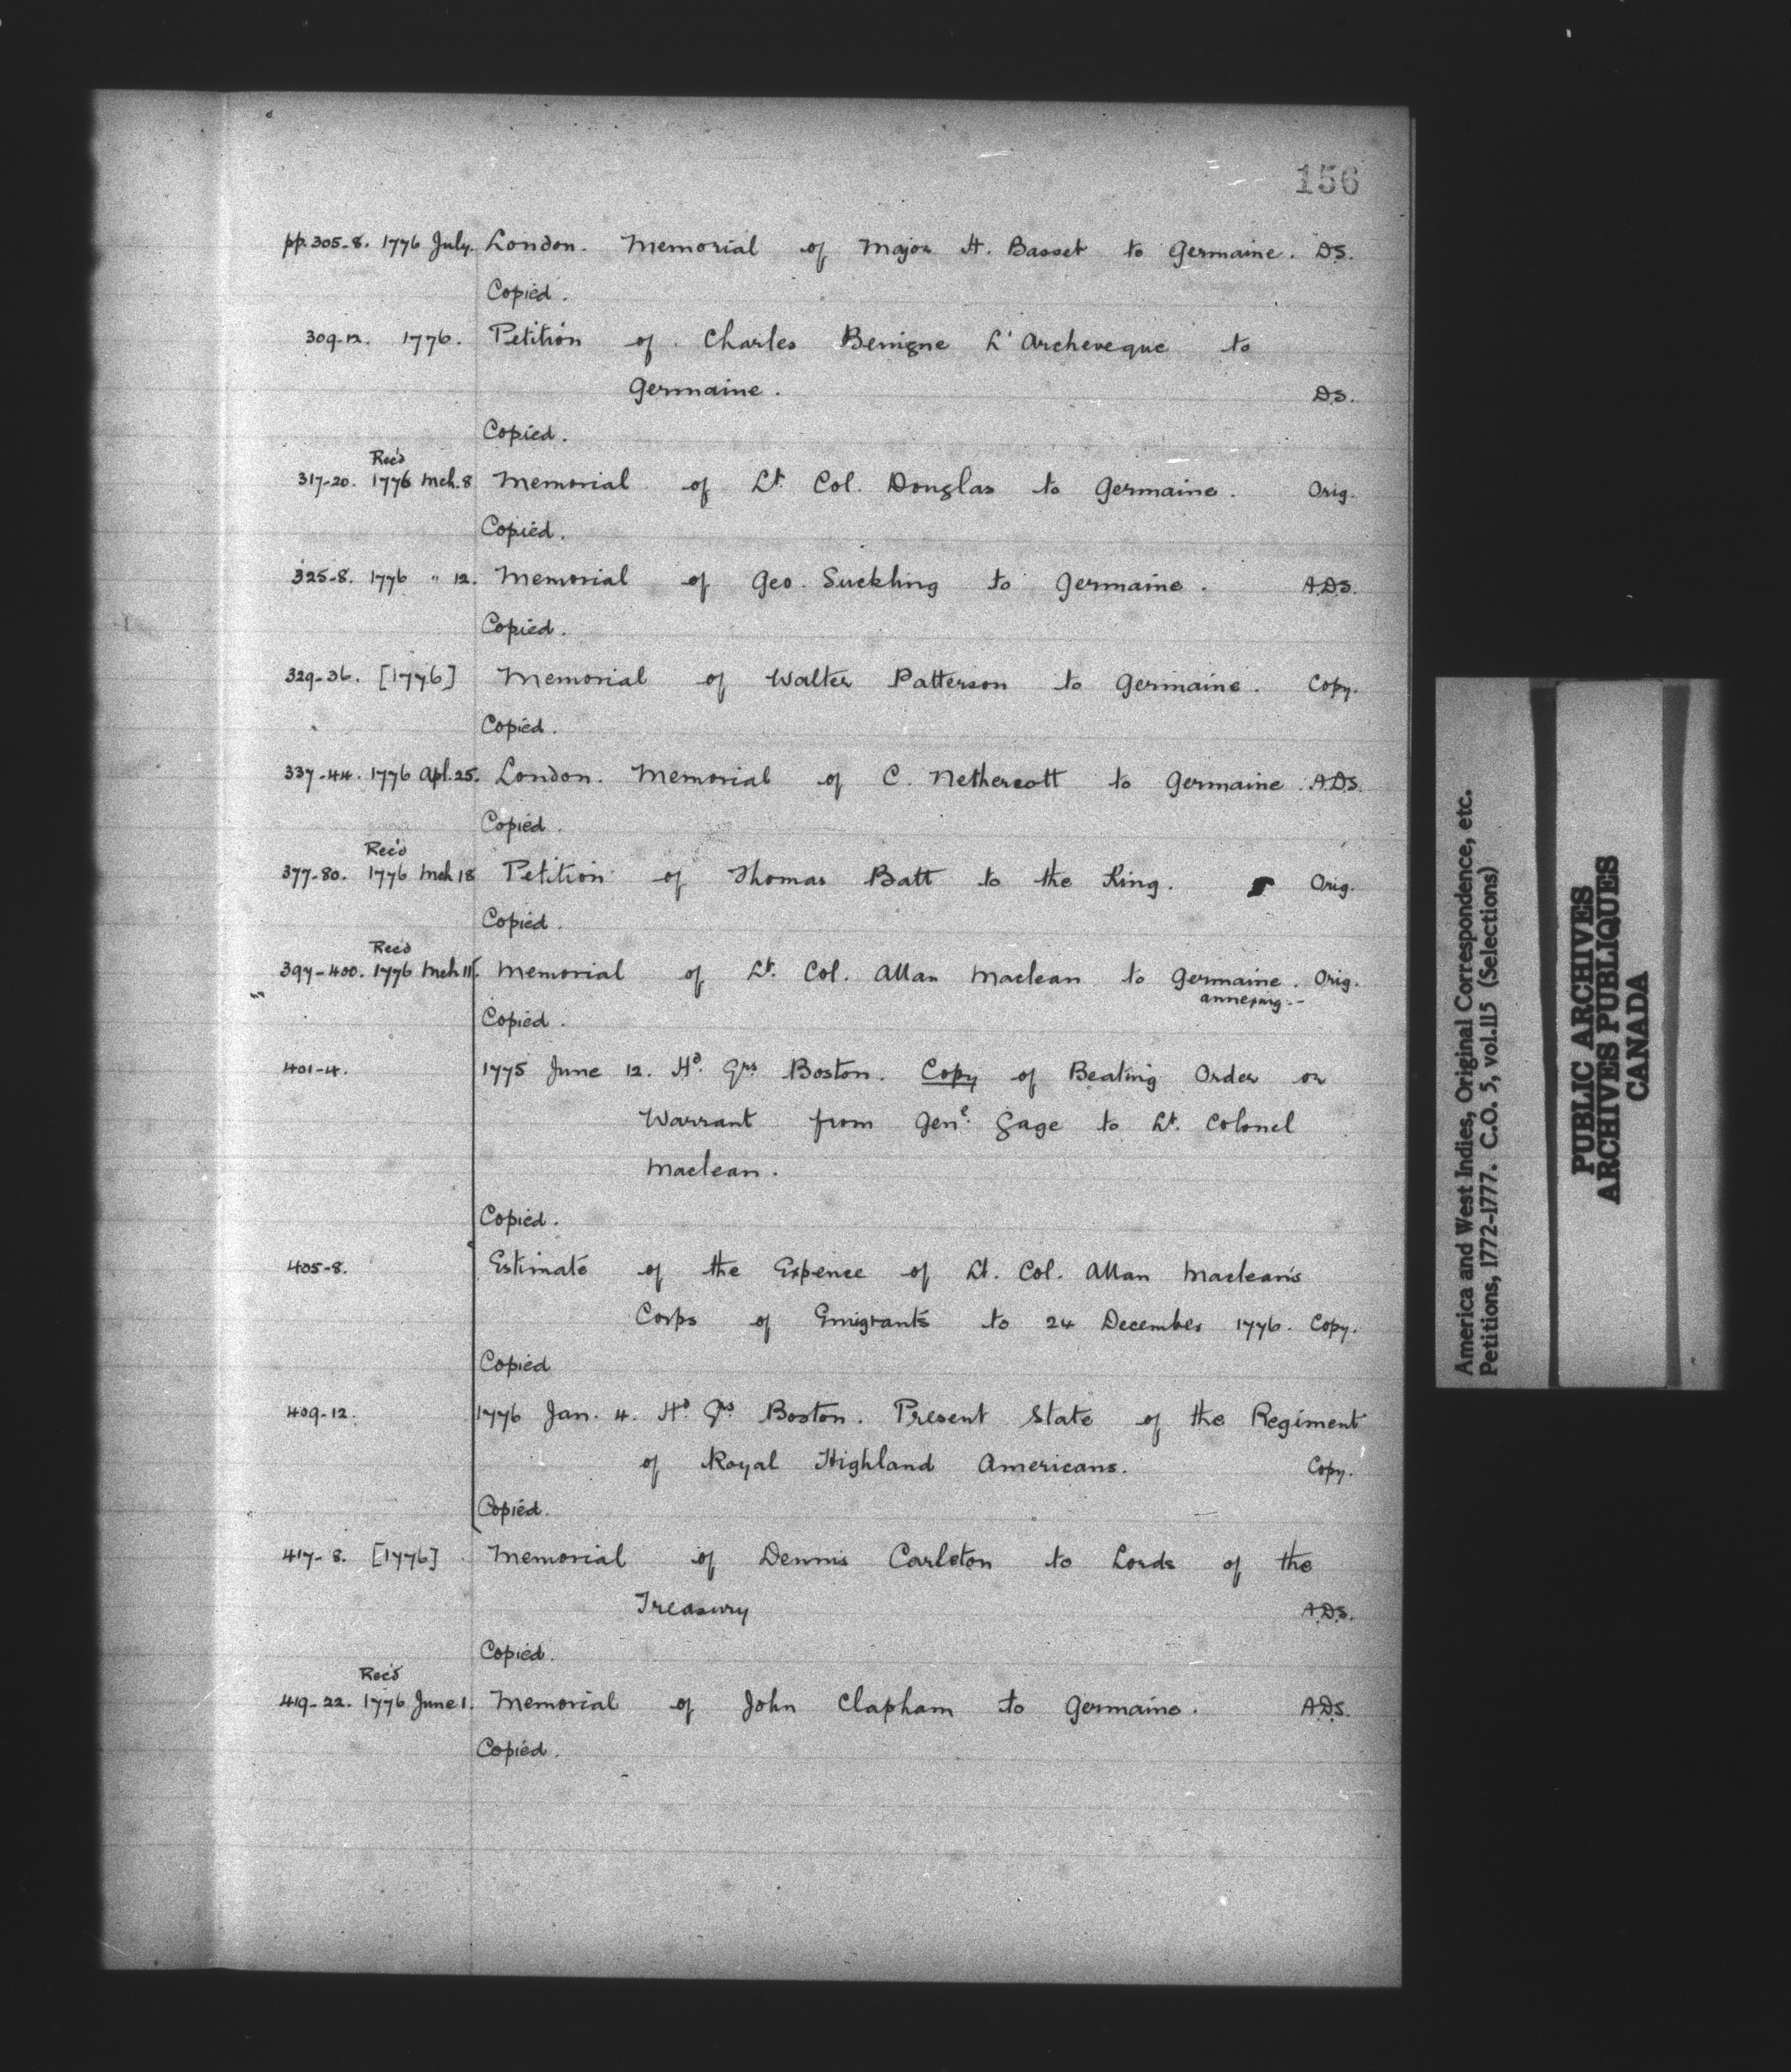 156
pp. 305-8. 1776 July. London. Memorial of Major H. Basset to Germaine. D.S.
Copied.
309-12. 1776. Petition of Charles Benigne L'Archeveque to
Germaine. D.S.
Copied.
Rec'd
317-20. 1776 Mch. 8 Memorial of Lt. Col. Douglas to Germaine. Orig.
Copied.
325-8. 1776 " 12. Memorial of Geo. Suckling to Germaine. A.D.S.
Copied.
329-36. [1776] Memorial of Walter Patterson to Germaine. Copy.
Copied.
337-44. 1776 Apl. 25. London. Memorial of C. Nethercott to Germaine. A.D.S.
Copied.
Rec'd
377-80. 1776 Mch 18 Petition of Thomas Batt to the King. Orig.
Copied.
Rec'd
397-400. 1776 Mch 11. Memorial of Lt. Col. Allan Maclean to Germaine. Orig.
annexing:-
Copied.
401-4. 1775 June 12. Hd. Qrs Boston. Copy of Beating Order or
Warrant from Genl. Gage to Lt. Colonel
Maclean.
Copied.
405-8. Estimate of the Expence of Lt. Col. Allan Maclean's
Corps of Emigrants to 24 December 1776. Copy.
Copied
409-12. 1776 Jan. 4. Hd. Qrs. Boston. Present State of the Regiment
of Royal Highland Americans. Copy.
Copied.
417-8. [1776] Memorial of Dennis Carleton to Lords of the
Treasury A.D.S.
Copied.
Rec'd
419-22. 1776 June 1. Memorial of John Clapham to Germaine. A.D.S.
Copied.
America and West Indies, Original Correspondence, etc.
Petitions, 1772-1777. C.O. 5, vol. 115 (Selections)
PUBLIC ARCHIVES
ARCHIVES PUBLIQUES
CANADA